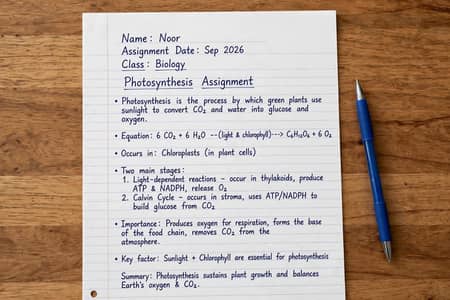 Name: Noor
Assignment Date: Sep 2026
Class: Biology
Photosynthesis Assignment
• Photosynthesis is the process by which green plants use
sunlight to convert CO₂ and water into glucose and
oxygen.
• Equation: 6 CO₂ + 6 H₂O --(light & chlorophyll)---> C₆H₁₂O₆ + 6 O₂
• Occurs in: Chloroplasts (in plant cells)
• Two main stages:
1. Light-dependent reactions - occur in thylakoids, produce
ATP & NADPH, release O₂
2. Calvin Cycle - occurs in stroma, uses ATP/NADPH to
build glucose from CO₂
• Importance: Produces oxygen for respiration, forms the base
of the food chain, removes CO₂ from the
atmosphere.
• Key factor: Sunlight + Chlorophyll are essential for photosynthesis
Summary: Photosynthesis sustains plant growth and balances
Earth's oxygen & CO₂.